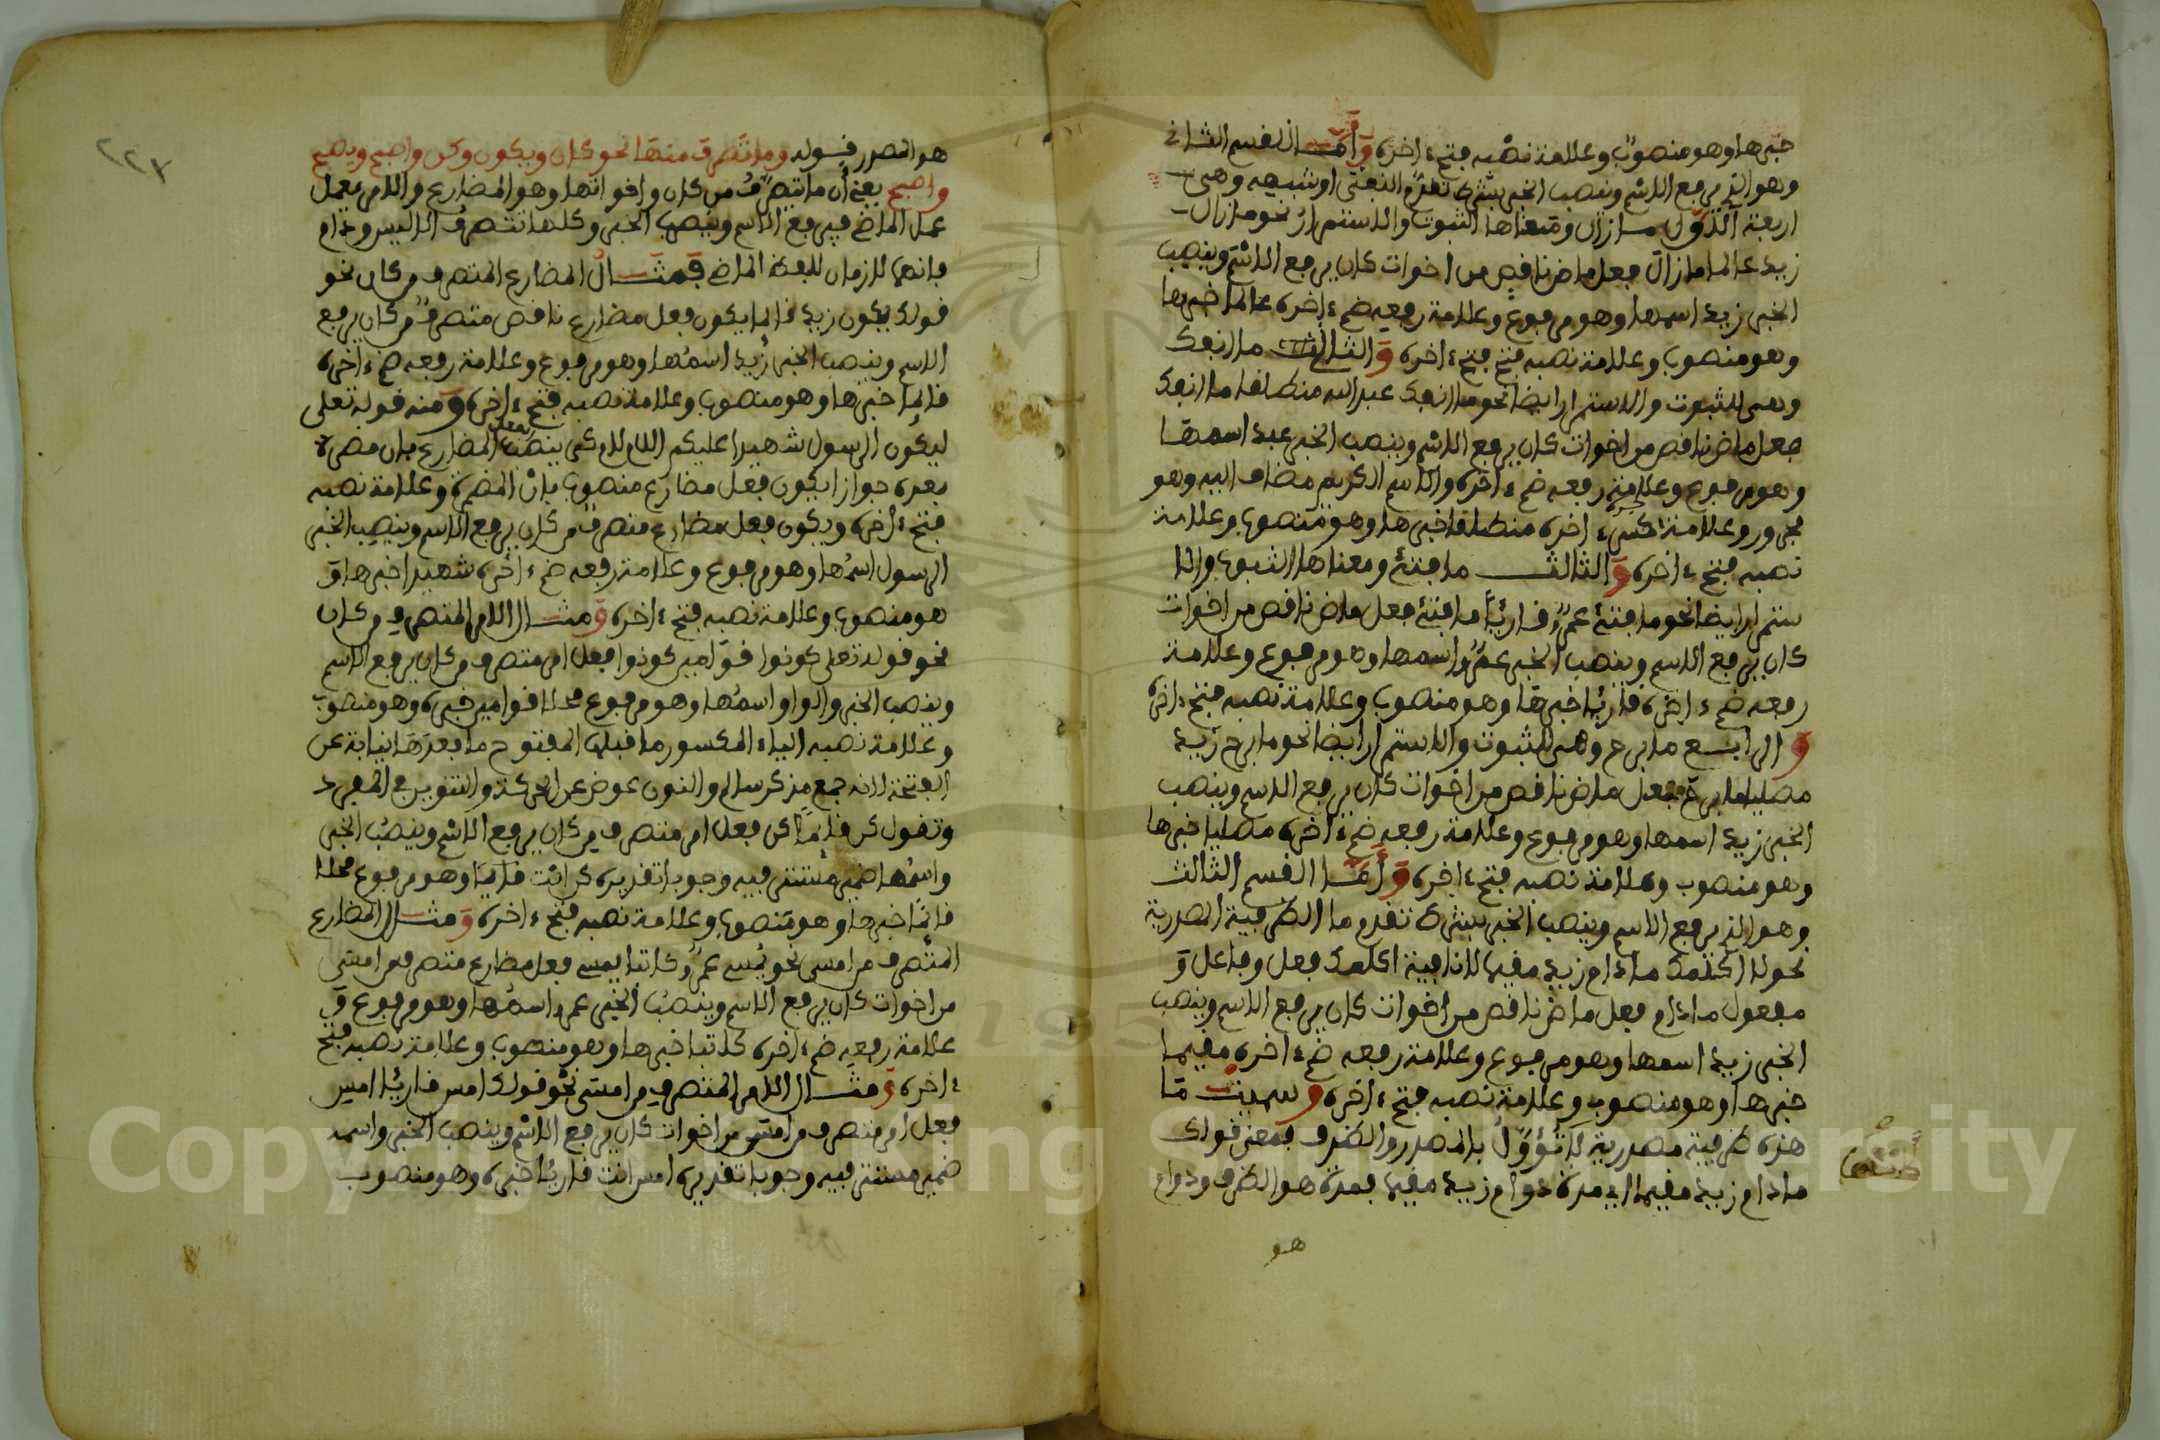 خبرها وهو منصوب وعلامة نصبه فتح ءاخره وأمـا القسم الثاني
وهو الذي يرفع الاسم وينصب الخبر بشرط تقدم النفي او شبهه وهي
اربعة الاول ما زال ومعناها الثبوت والاستمرار نحو ما زال
زيد عالما ما زال فعل ماض ناقص من اخوات كان يرفع الاسم وينصب
الخبر زيد اسمها وهو مرفوع وعلامة رفعه ضم ءاخره عالما خبرها
وهو منصوب وعلامة نصبه فتح فتح ءاخره والثاني ما انفك
وهي للثبوت والاستمرار ايضا نحو ما انفك عبد الله منطلقا ما انفك
فعل ماض ناقص من اخوات كان يرفع الاسم وينصب الخبر عبد اسمها
وهو مرفوع وعلامة رفعه ضم ءاخره والاسم الكريم مضاف اليه وهو
مجرور وعلامة جره كسر ءاخره منطلقا خبرها وهو منصوب وعلامة
نصبه فتح ءاخره والثالث ما فتئ ومعناها الثبوت والا
ستمرار ايضا نحو ما فتئ عمرو قارئا ما فتئ فعل ماض ناقص من اخوات
كان يرفع الاسم وينصب الخبر عمرو اسمها وهو مرفوع وعلامة
رفعه ضم ءاخره قارئا خبرها وهو منصوب وعلامة نصبه فتح ءاخره
والرابع ما برح وهي للثبوت والاستمرار ايضا نحو ما برح زيد
مصليا ما برح فعل ماض ناقص من اخوات كان يرفع الاسم وينصب
الخبر زيد اسمها وهو مرفوع وعلامة رفعه ضم ءاخره مصليا خبرها
وهو منصوب وعلامة نصبه فتح ءاخره وأمـا القسم الثالث
وهو الذي يرفع الاسم وينصب الخبر بشرط تقدم ما الظرفية المصدرية
نحو لا اكلمك ما دام زيد مقيما لا نافية اكلمك فعل وفاعل و
مفعول ما دام فعل ماض ناقص من اخوات كان يرفع الاسم وينصب
الخبر زيد اسمها وهو مرفوع وعلامة رفعه ضم ءاخره مقيما
خبرها وهو منصوب وعلامة نصبه فتح ءاخره وسميت ما
هذه ظرفية مصدرية لانها تؤول بالمصدر والظرف فمعنى قولك
ما دام زيد مقيما اي مدة دوام زيد مقيما فمدة هو الظرف ودوام
هو
هو المصدر قوله وما تصرف منها نحو كان ويكون وكن واصبح ويصبح
واصبح يعني أن ما يتصرف من كان واخواتها وهو المضارع والامر يعمل
عمل الماضي فيرفع الاسم وينصب الخبر وكلها تتصرف الا ليس ودام
فانهما لازمان للفظ الماضي فمثـال المضارع المتصرف من كان نحو
قولك يكون زيد قائما يكون فعل مضارع ناقص متصرف من كان يرفع
الاسم وينصب الخبر زيد اسمها وهو مرفوع وعلامة رفعه ضم ءاخره
قائما خبرها وهو منصوب وعلامة نصبه فتح ءاخره ومنه قوله تعلى
ليكون الرسول شهيدا عليكم اللام لام كي ينصب الفعل المضارع بان مضمرة
بعده جوازا يكون فعل مضارع منصوب بأن المضمرة وعلامة نصبه
فتح ءاخره ويكون فعل مضارع متصرف من كان يرفع الاسم وينصب الخبر
الرسول اسمها وهو مرفوع وعلامة رفعه ضم ءاخره شهيدا خبرها و
هو منصوب وعلامة نصبه فتح ءاخره ومثـال الامر المتصرف من كان
نحو قوله تعلى كونوا قوامين كونوا فعل امر متصرف من كان يرفع الاسم
وينصب الخبر والواو اسمها وهو مرفوع محلا قوامين خبره وهو منصوب
وعلامة نصبه الياء المكسور ما قبلها المفتوح ما بعدها نيابة عن
الفتحة لانه جمع مذكر سالم والنون عوض عن الحركة والتنوين في المفرد
وتقول كن قائما كن فعل امر متصرف من كان يرفع الاسم وينصب الخبر
واسمها ضمير مستتر فيه وجوبا تقديره كن انت قائما وهو مرفوع محلا
قائما خبرها وهو منصوب وعلامة نصبه فتح ءاخره ومثـال المضارع
المتصرف من امسى نحو يمسي عمرو كاتبا يمسي فعل مضارع متصرف من امسى
من اخوات كان يرفع الاسم وينصب الخبر عمرو اسمها وهو مرفوع و
علامة رفعه ضم ءاخره كاتبا خبرها وهو منصوب وعلامة نصبه فتح
ءاخره ومثـال الامر المتصرف من امسى نحو قولك امس قارئا امس
فعل امر متصرف من امسى من اخوات كان يرفع الاسم وينصب الخبر واسمه
ضمير مستتر فيه وجوبا تقديره امس انت قارئا خبره وهو منصوب
٢٢٧
Copyright © King Saud University
195